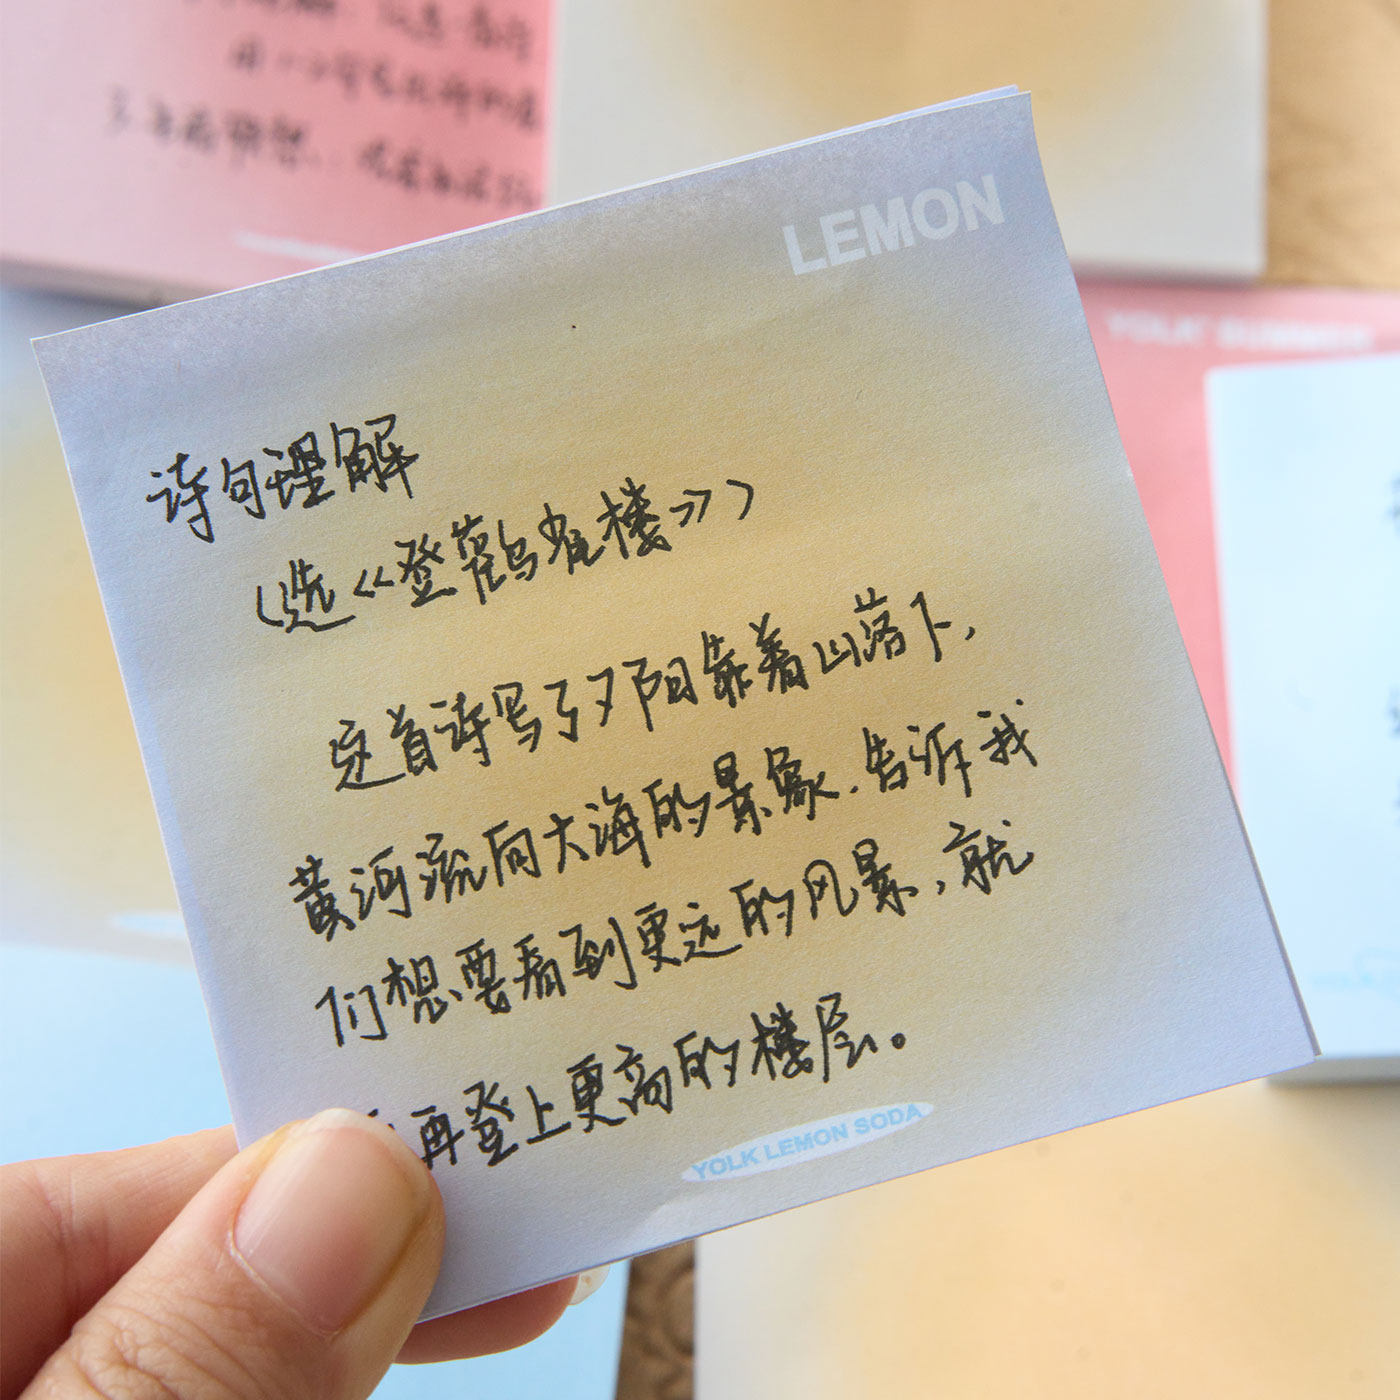 LEMON
诗句理解
(选《登鹳雀楼》)
这首诗写了夕阳靠着山落下,
黄河流向大海的景象.告诉我
们想要看到更远的风景,就
再登上更高的楼层。
YOLK LEMON SODA
YOLK SUMMER